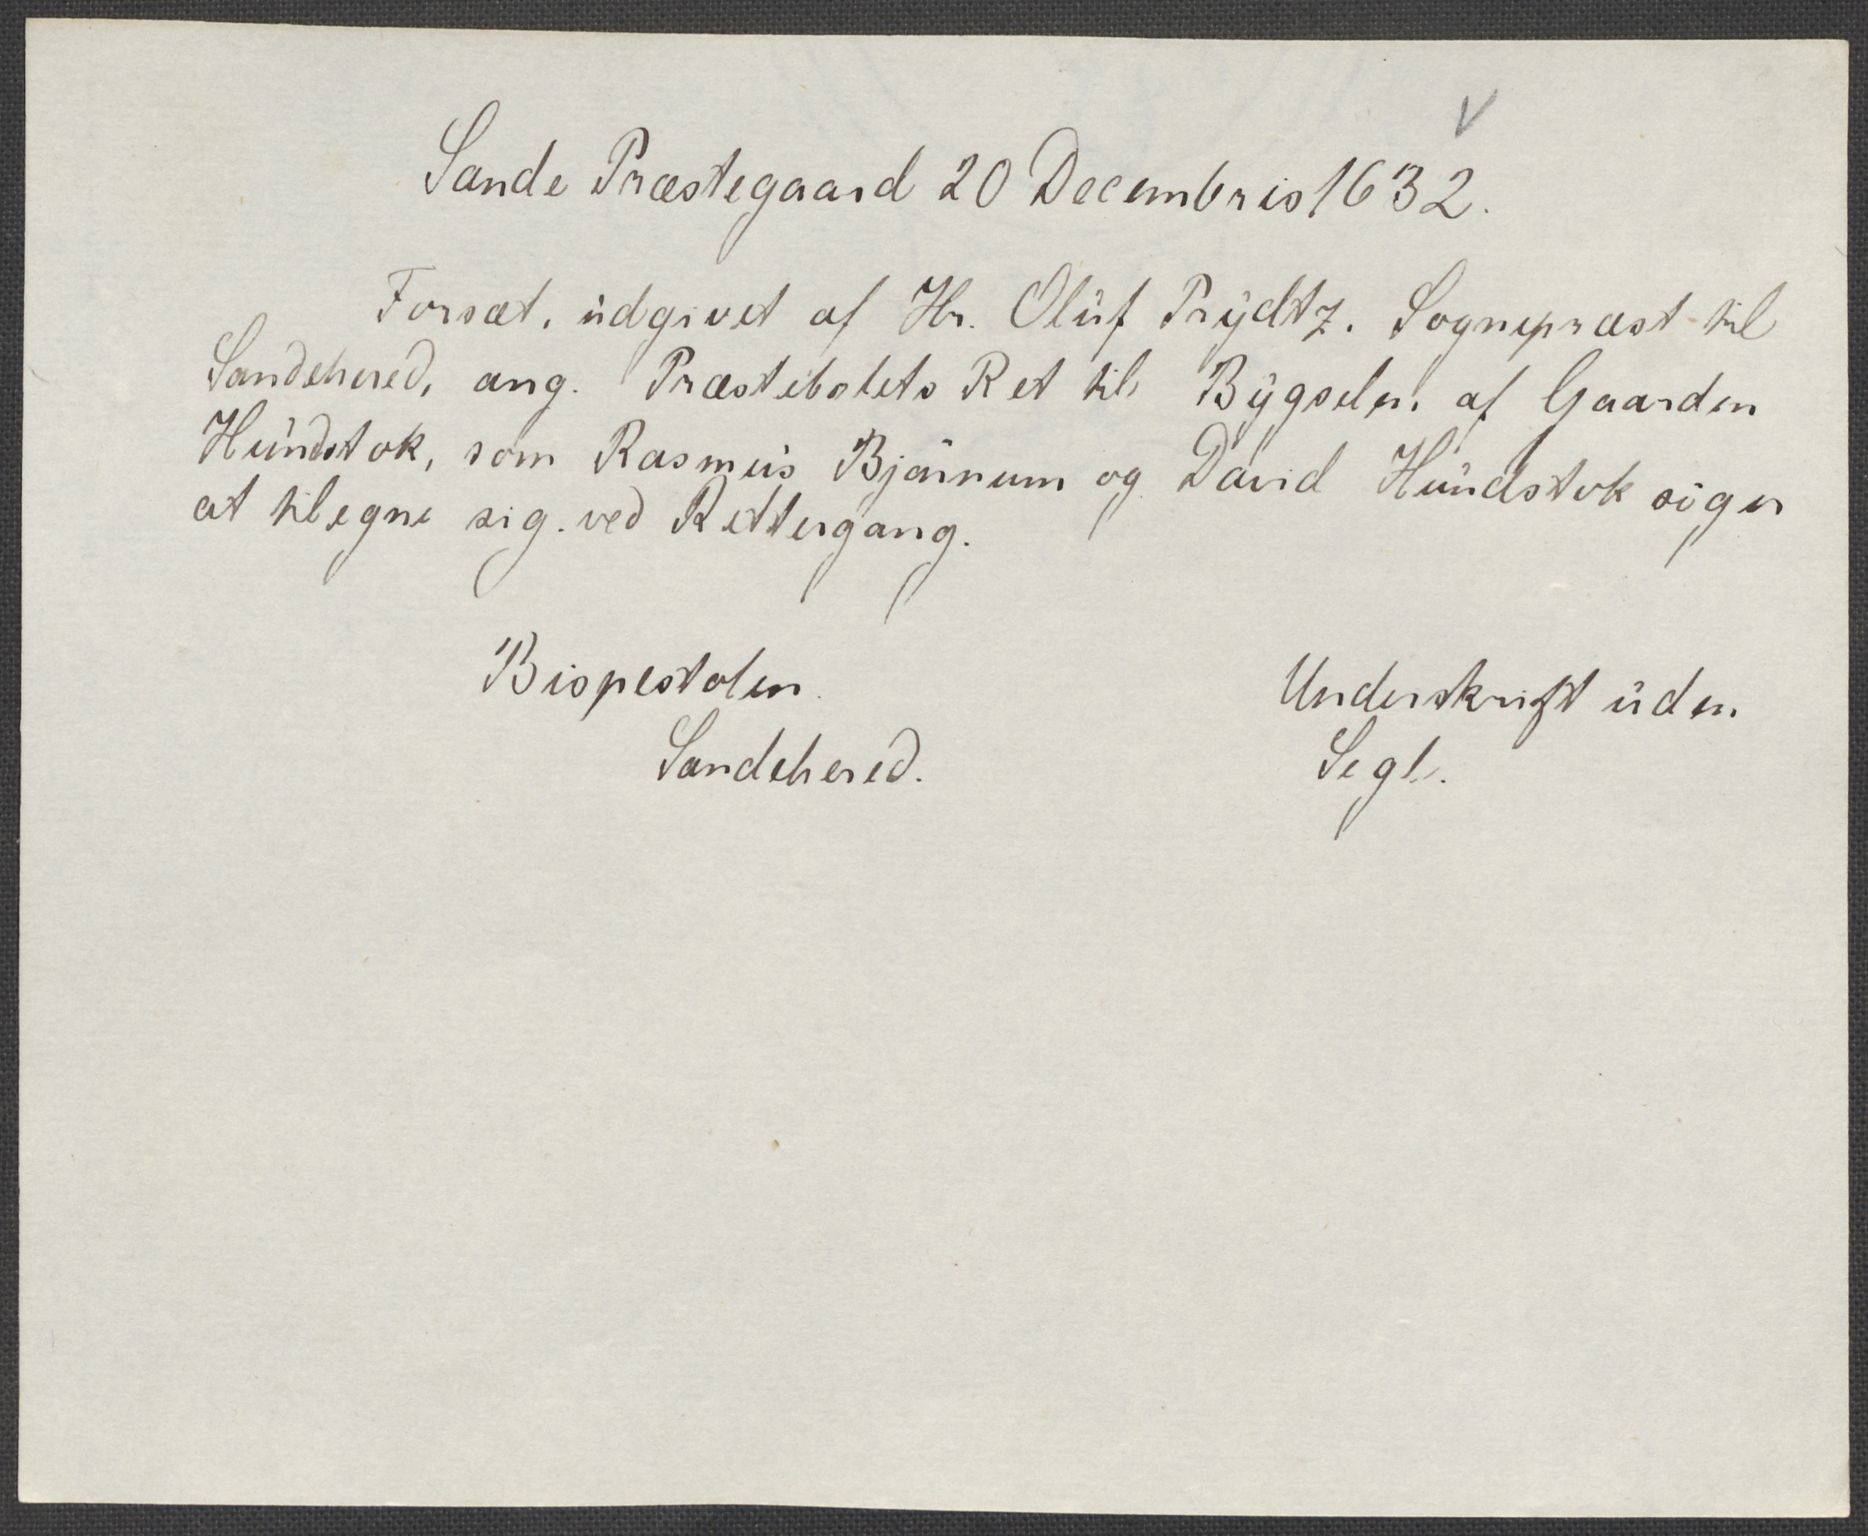 Sande Præstegaard 20 Decembris 1632.
Forsæt, udgivet af Hr. Oluf Prydtz, Sognepræst til
Sandehered, ang. Præstebolets Ret til Bygselen af Gaarden
Hundstok, som Rasmus Bjärnum og David Hundstok søger
at tilegne sig ved Rettergang.
Bispestolen.
Sandehered.
Underskrift uden
Segl.